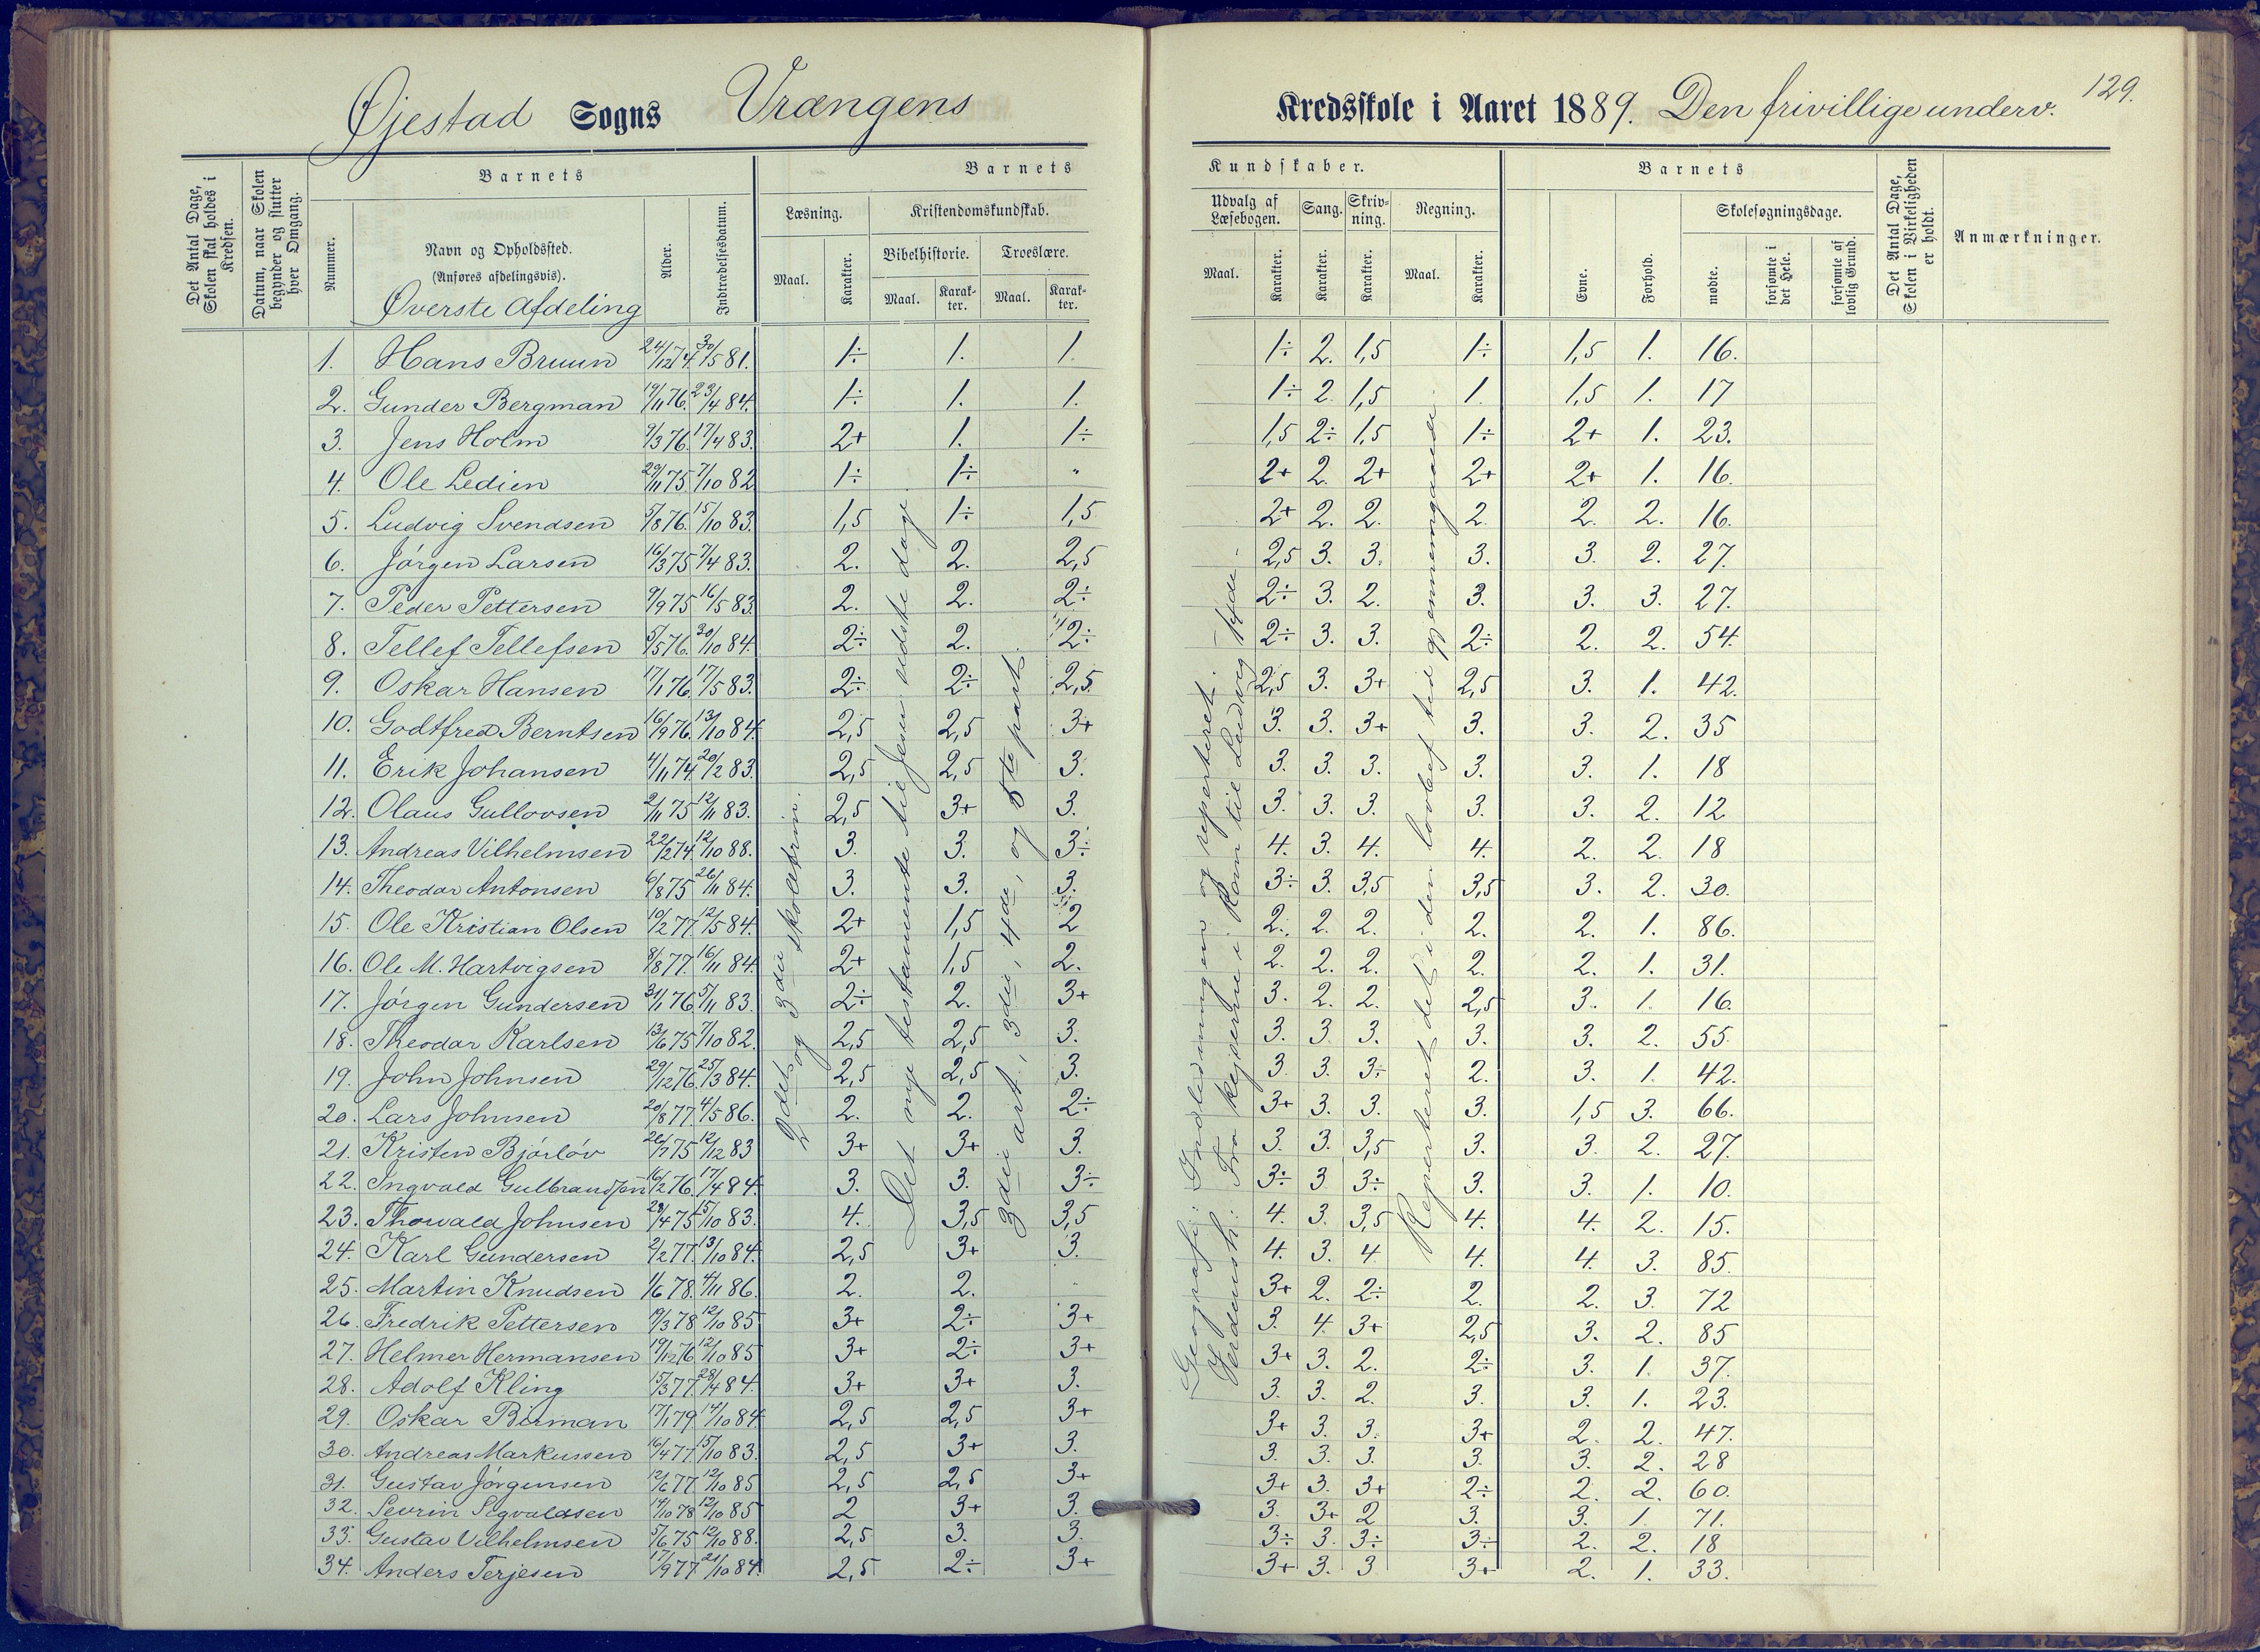 Øjestad Sogns Vrængens Kredsskole i Aaret 1889. Den frivillige underv. 129.
Det Antal Dage, Skolen skal holdes i Kredsen.
Datum, naar Skolen begynder og slutter hver Omgang.
Barnets
Nummer.
Navn og Opholdssted.
(Anføres afdelingsvis).
Øverste Afdeling
Alder.
Indtrædelsesdatum.
Barnets Kundskaber.
Læsning.
Maal. Karakter.
Kristendomskundskab.
Bibelhistorie. Troeslære.
Maal. Karakter. Maal. Karakter.
Udvalg af Læsebogen. Sang. Skrivning. Regning.
Maal. Karakter. Karakter. Karakter. Maal. Karakter.
Barnets
Evne. Forhold.
Skolesøgningsdage.
mødte. forsømte i det Hele. forsømte af lovlig Grund.
Det Antal Dage, Skolen i Virkeligheden er holdt.
Anmærkninger.
1. Hans Bruun 24/12 74. 30/5 81. 1÷ 1. 1. 1÷ 2. 1,5 1÷ 1,5 1. 16.
2. Gunder Bergman 19/11 76. 23/4 84. 1÷ 1. 1. 1÷ 2. 1,5 1. 1,5 1. 17
3. Jens Holm 9/3 76. 17/4 83. 2+ 1. 1÷ 1,5 2÷ 1,5 1÷ 2+ 1. 23.
4. Ole Ledien 29/11 75. 7/10 82 1÷ 1÷ " 2+ 2. 2+ 2+ 2+ 1. 16.
5. Ludvig Svendsen 5/8 76. 15/10 83. 1,5 1÷ 1,5 2+ 2. 2. 2. 2. 2. 16.
6. Jørgen Larsen 16/3 75 7/4 83. 2. 2. 2,5 2,5 3. 3. 3. 3. 2. 27.
7. Peder Pettersen 9/9 75 16/5 83. 2. 2. 2÷ 2÷ 3. 2. 3. 3. 3. 27.
8. Tellef Tellefsen 5/5 76. 30/10 84. 2÷ 2. 2÷ 2÷ 3. 3. 2÷ 2. 2. 54.
9. Oskar Hansen 17/1 76. 17/5 83. 2÷ 2÷ 2,5 2,5 3. 3+ 2,5 3. 1. 42.
10. Godtfred Berntsen 16/9 76. 13/10 84. 2,5 2,5 3+ 3. 3. 3+ 3. 3. 2. 35
11. Erik Johansen 4/11 74. 20/2 83. 2,5 2,5 3. 3. 3. 3. 3. 3. 1. 18
12. Olaus Gullovsen 2/11 75 12/11 83. 2,5 3+ 3. 3. 3. 3. 3. 3. 2. 12
13. Andreas Vilhelmsen 22/2 74. 12/10 88. 3. 3. 3÷ 4. 3. 4. 4. 2. 2. 18
14. Theodor Antonsen 6/8 75 26/11 84. 3. 3. 3. 3÷ 3. 3,5 3,5 3. 2. 30.
15. Ole Kristian Olsen 10/2 77. 12/5 84. 2+ 1,5 2 2. 2. 2. 2. 2. 1. 86.
16. Ole M. Hartvigsen 8/8 77. 16/11 84. 2+ 1,5 2. 2. 2. 2. 2. 2. 1. 31.
17. Jørgen Gundersen 31/1 76. 5/11 83. 2÷ 2. 3+ 3. 2. 2. 2,5 3. 1. 16.
18. Theodor Karlsen 13/6 75 7/10 82. 2,5 2,5 3. 3. 3. 3. 3. 3. 2. 55.
19. John Johnsen 29/12 76. 25/3 84. 2,5 2,5 3. 3 3. 3÷ 2. 3. 1. 42.
20. Lars Johnsen 20/8 77. 4/5 86. 2. 2. 2÷ 3+ 3. 3. 3. 1,5 3. 66.
21. Kristen Bjørløv 26/7 75 12/12 83 3+ 3+ 3. 3. 3. 3,5 3. 3. 2. 27.
22. Ingvald Gulbrandsen 16/2 76. 17/4 84. 3. 3. 3÷ 3÷ 3 3÷ 3. 3. 1. 10.
23. Thorvald Johnsen 29/4 75 15/10 83. 4. 3,5 3,5 4. 3. 3,5 4. 4. 2. 15.
24. Karl Gundersen 2/2 77. 13/10 84. 2,5 3+ 3. 4. 3. 4 4. 4. 3. 85.
25. Martin Knudsen 1/6 78. 4/11 86. 2. 2. 3+ 2. 2÷ 2. 2. 3. 72
26. Fredrik Pettersen 19/3 78 12/10 85 3+ 2÷ 3+ 3. 4. 3+ 2,5 3. 2. 85
27. Helmer Hermansen 19/12 76 12/10 85 3+ 2÷ 3+ 3+ 3. 2. 2÷ 3. 1. 37.
28. Adolf Kling 15/3 77. 28/4 84. 3+ 3+ 3. 3. 3. 2. 3. 3. 1. 23.
29. Oskar Birman 17/1 79 14/10 84 2,5 2,5 3+ 3+ 3. 3. 3+ 2. 2. 47.
30. Andreas Markussen 16/4 77. 15/10 83. 2,5 3+ 3. 3. 3. 3. 3. 3. 2. 28
31. Gustav Jørgensen 12/6 77 12/10 85 2,5 2,5 3+ 3+ 3. 3+ 2÷ 2. 2. 60.
32. Sevrin Segvaldsen 14/10 78 12/10 85 2 3+ 3. 3. 3+ 2 3. 3. 1. 71.
33. Gustav Vilhelmsen 5/6 75 12/10 88. 2,5 3. 3. 3÷ 3. 3÷ 3÷ 2. 2. 18
34. Anders Terjesen 17/9 77 21/10 84. 2,5 2÷ 3+ 3+ 3. 3 3+ 2. 1. 33.
2det og 3die skoletrin.
Det nye testamente til Jesu sidste dage.
3die art, 3die, 4de, og 5te part.
Geografi: Indledningen og reperteret.
Verdensh: Fra kejserne i Rom til Ludvig 14de.
Reperteret det i den lovbef. tid gjennemgaaede.